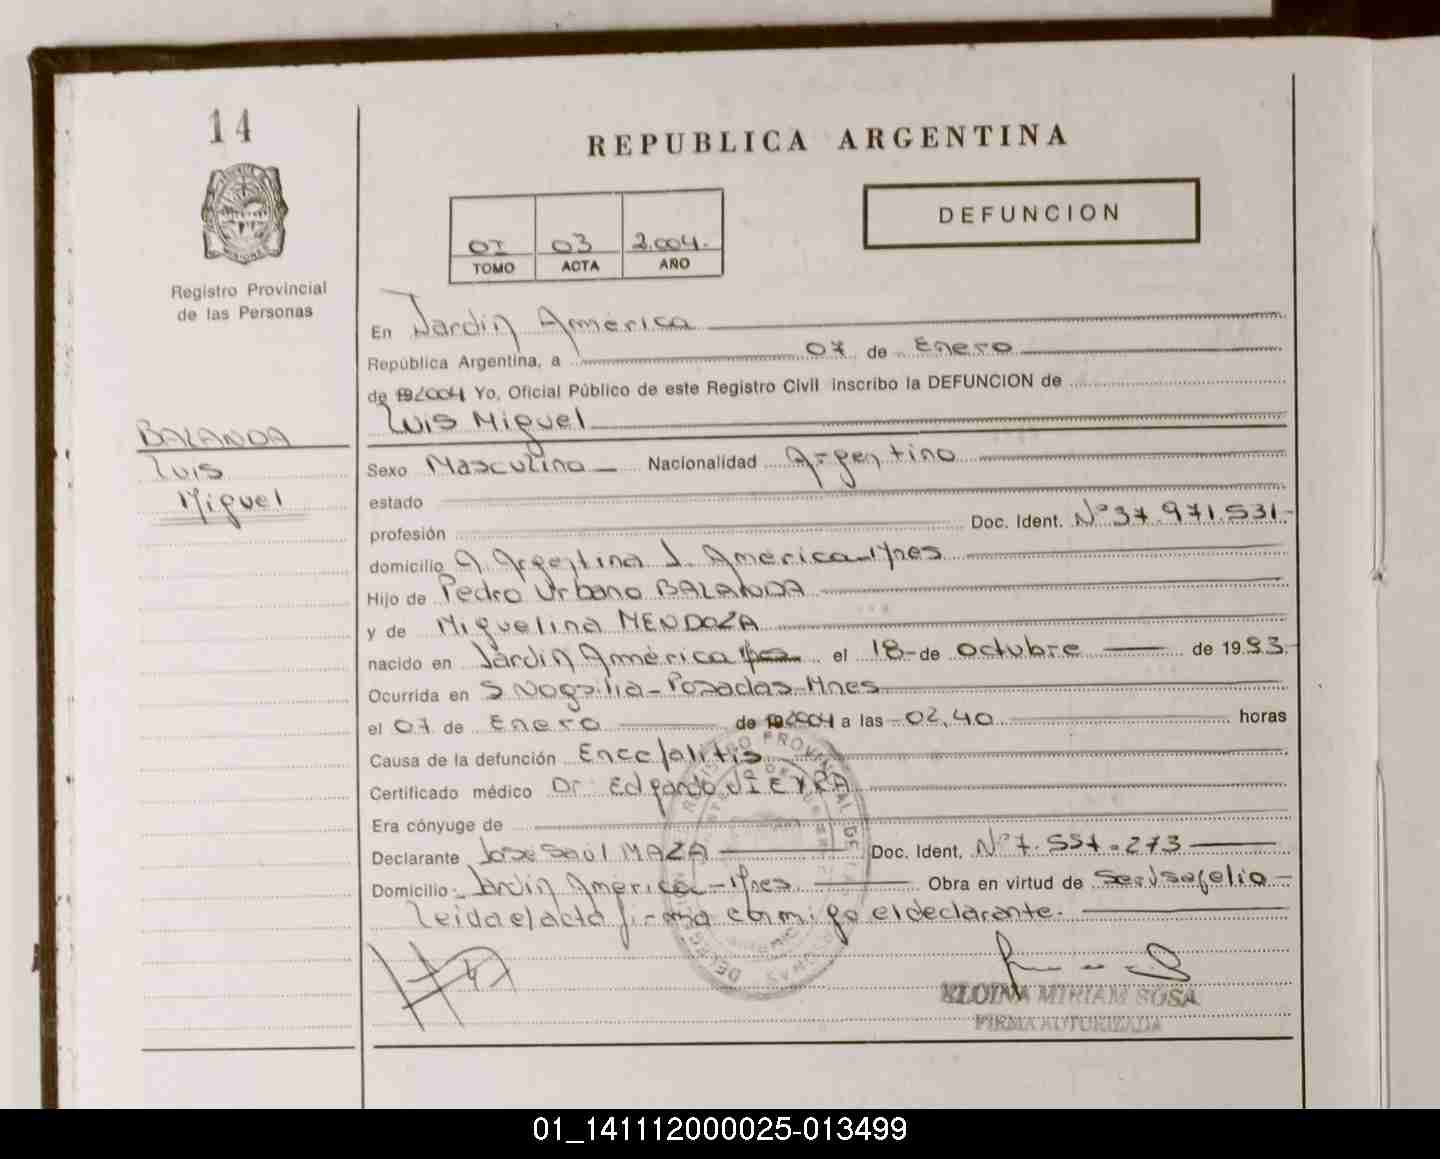 14
REPUBLICA ARGENTINA
DEFUNCION
01 03 2.004.
TOMO ACTA AÑO
Registro Provincial
de las Personas
En Jardín América
República Argentina, a 07 de Enero
de 2004 Yo, Oficial Público de este Registro Civil inscribo la DEFUNCION de
BALANDA
Luis Miguel
Luis
Miguel
Sexo Masculino Nacionalidad Argentino
estado
profesión Doc. Ident. Nº 37.971.531-
domicilio A. Argentina J. América-Mnes
Hijo de Pedro Urbano BALANDA
y de Miguelina MENDOZA
nacido en Jardín América Mnes el 18-de octubre de 1993.-
Ocurrida en Posadas-Mnes
el 07 de Enero de 2004 a las 02,40 horas
Causa de la defunción Encefalitis
Certificado médico Dr Edgardo VIEYRA
Era cónyuge de
Declarante Jose Saúl MAZA Doc. Ident. Nº 7.557.273
Domicilio Jardín América-Mnes Obra en virtud de
Leida el acta firma conmigo el declarante.
REGISTRO PROVINCIAL DE LAS PERSONAS
ELOINA MIRIAM SOSA
FIRMA AUTORIZADA
01_141112000025-013499